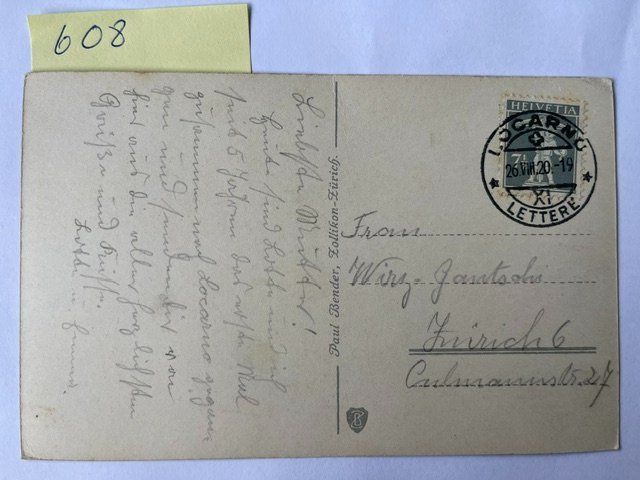 608
Liebste Mutter!
Heute sind Lotte und ich
seit 5 Jahren das erste Mal
zusammen nach Locarno gegan-
gen und senden dir von
hier aus die aller herzlichsten
Grüße und Küsse.
Lotte u
Paul Bender, Zollikon-Zürich.
HELVETIA
7½
LOCARNO
26.VIII.20.-19
XI
LETTERE
Frau
Wirz-Jantschi
Zürich 6
Culmannstr. 27